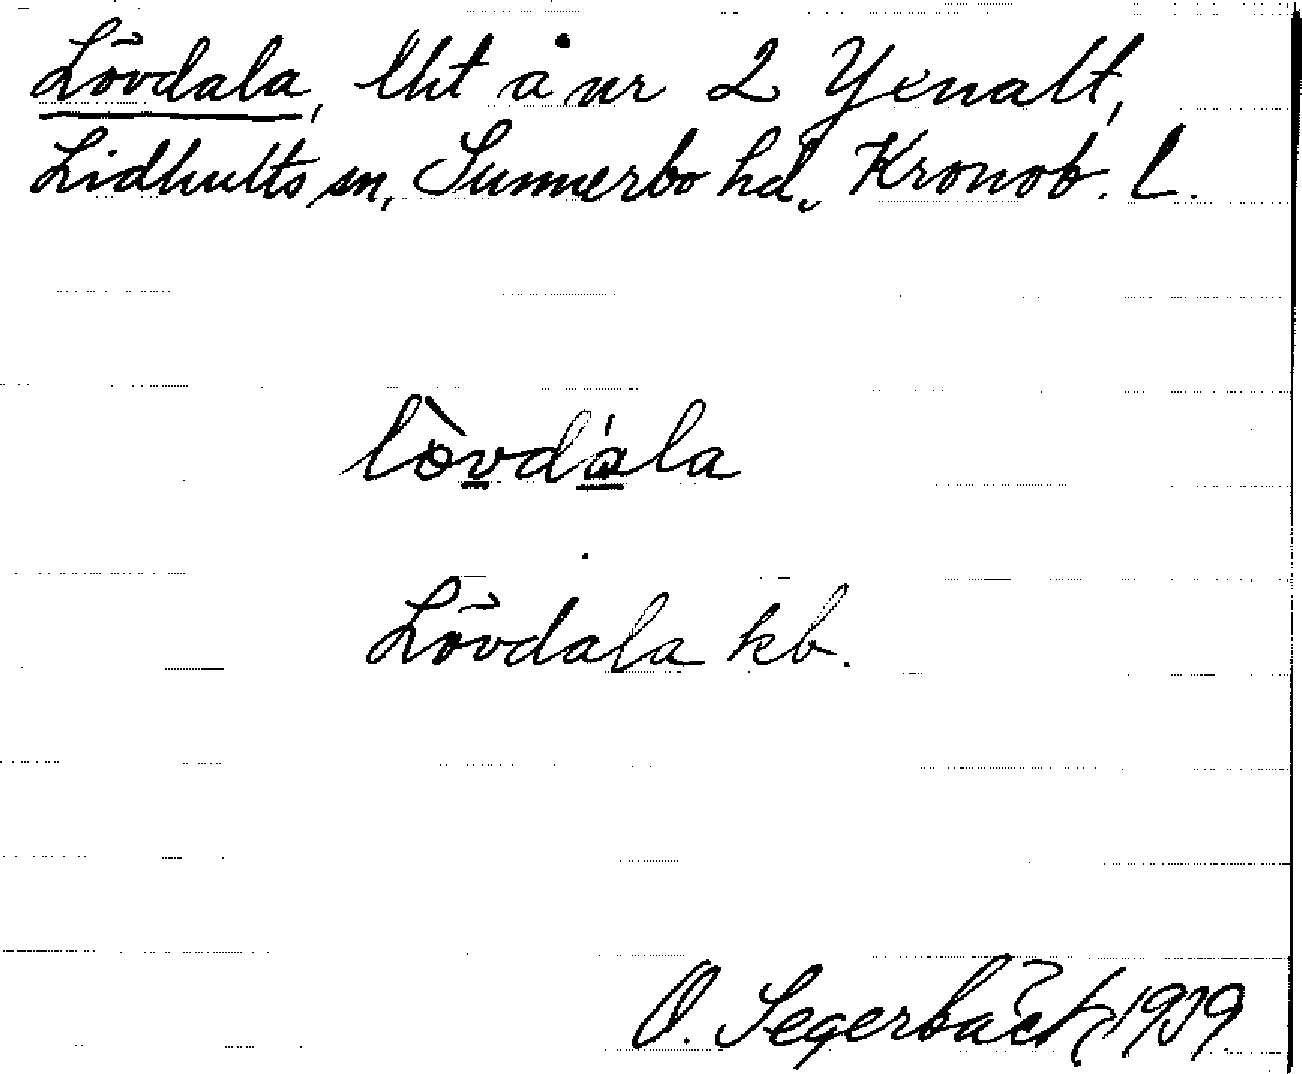 Lövdala, lht å nr 2 Yxnalt,
Lidhults sn, Sunnerbo hd, Kronob. L.
lòvdála
Lövdala kb.
O. Segerbäck 1939